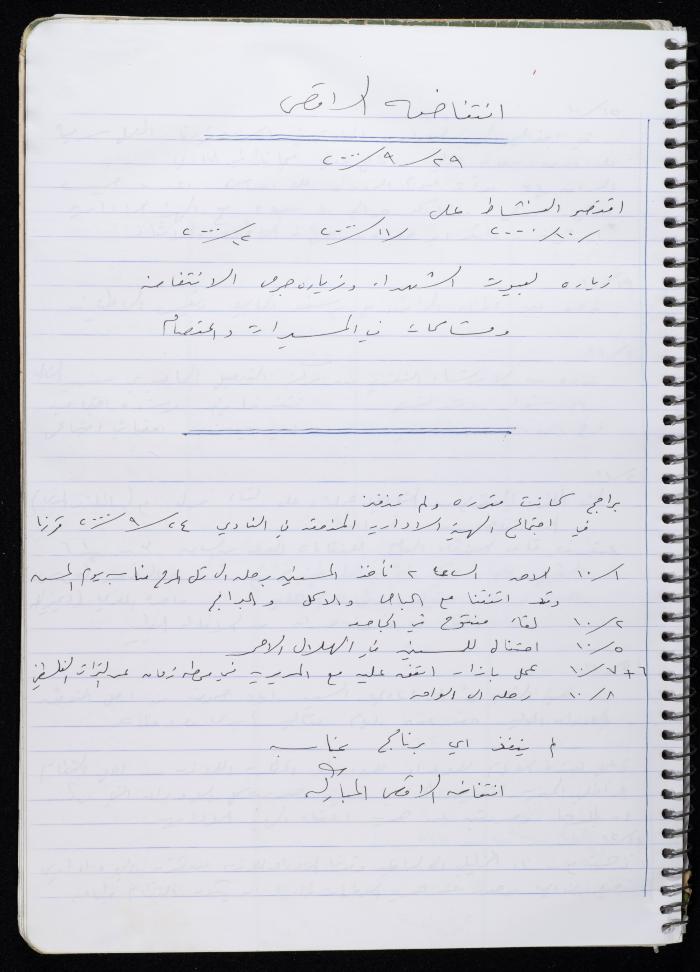 انتفاضة الاقصى
٢٩/٩/٢٠٠٠
اقتصر النشاط على
/١٠/٢٠٠٠ /١١/٢٠٠٠ /١٢/٢٠٠٠
زيارة لبيوت الشهداء وزيارة جرحى الانتفاضة
ومشاركات في المسيرات والاعتصام
برامج كانت مقررة ولم تنفذ
في اجتماع الهيئة الادارية المنعقد في النادي ٢٤/٩/٢٠٠٠ قررنا
١٠/١ الاحد الساعة ٢ نأخذ المسنين برحلة الى تل المرح بمناسبة يوم المسن
وقد اتفقنا مع الباص والاكل والبرامج
١٠/٢ لقاء مفتوح في
١٠/٥ احتفال للمسنين في الهلال الاحمر
٦+١٠/٧ عمل بازار اتفق عليه مع المديرية في التراث الفلسطيني
١٠/٨ رحلة الى
لم ينفذ اي برنامج بمناسبة
انتفاضة الاقصى المباركة